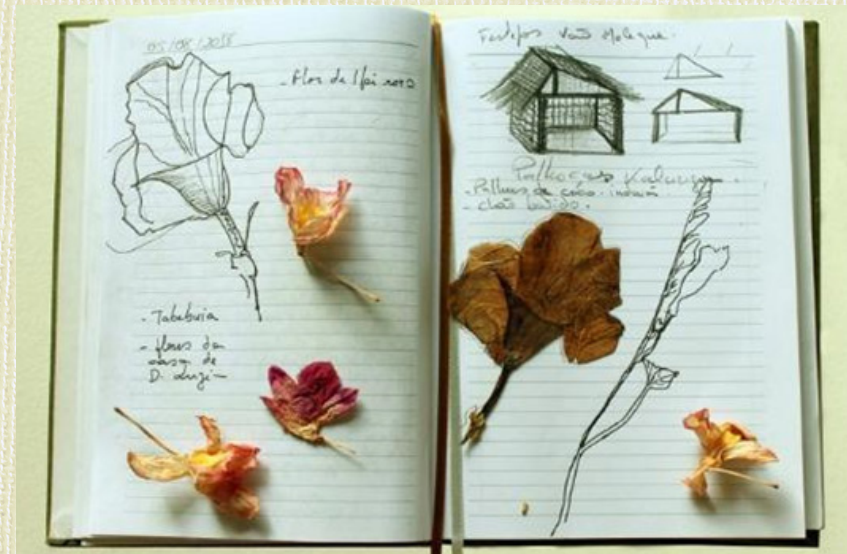 05/08/2018
- Flor de Ipê roxo
- Tabebuia
- flores da
casa de
D.
Festejos Vão Moleque.
Palhoças Kalunga.
- Palhas de côco indaiá
- chão batido.